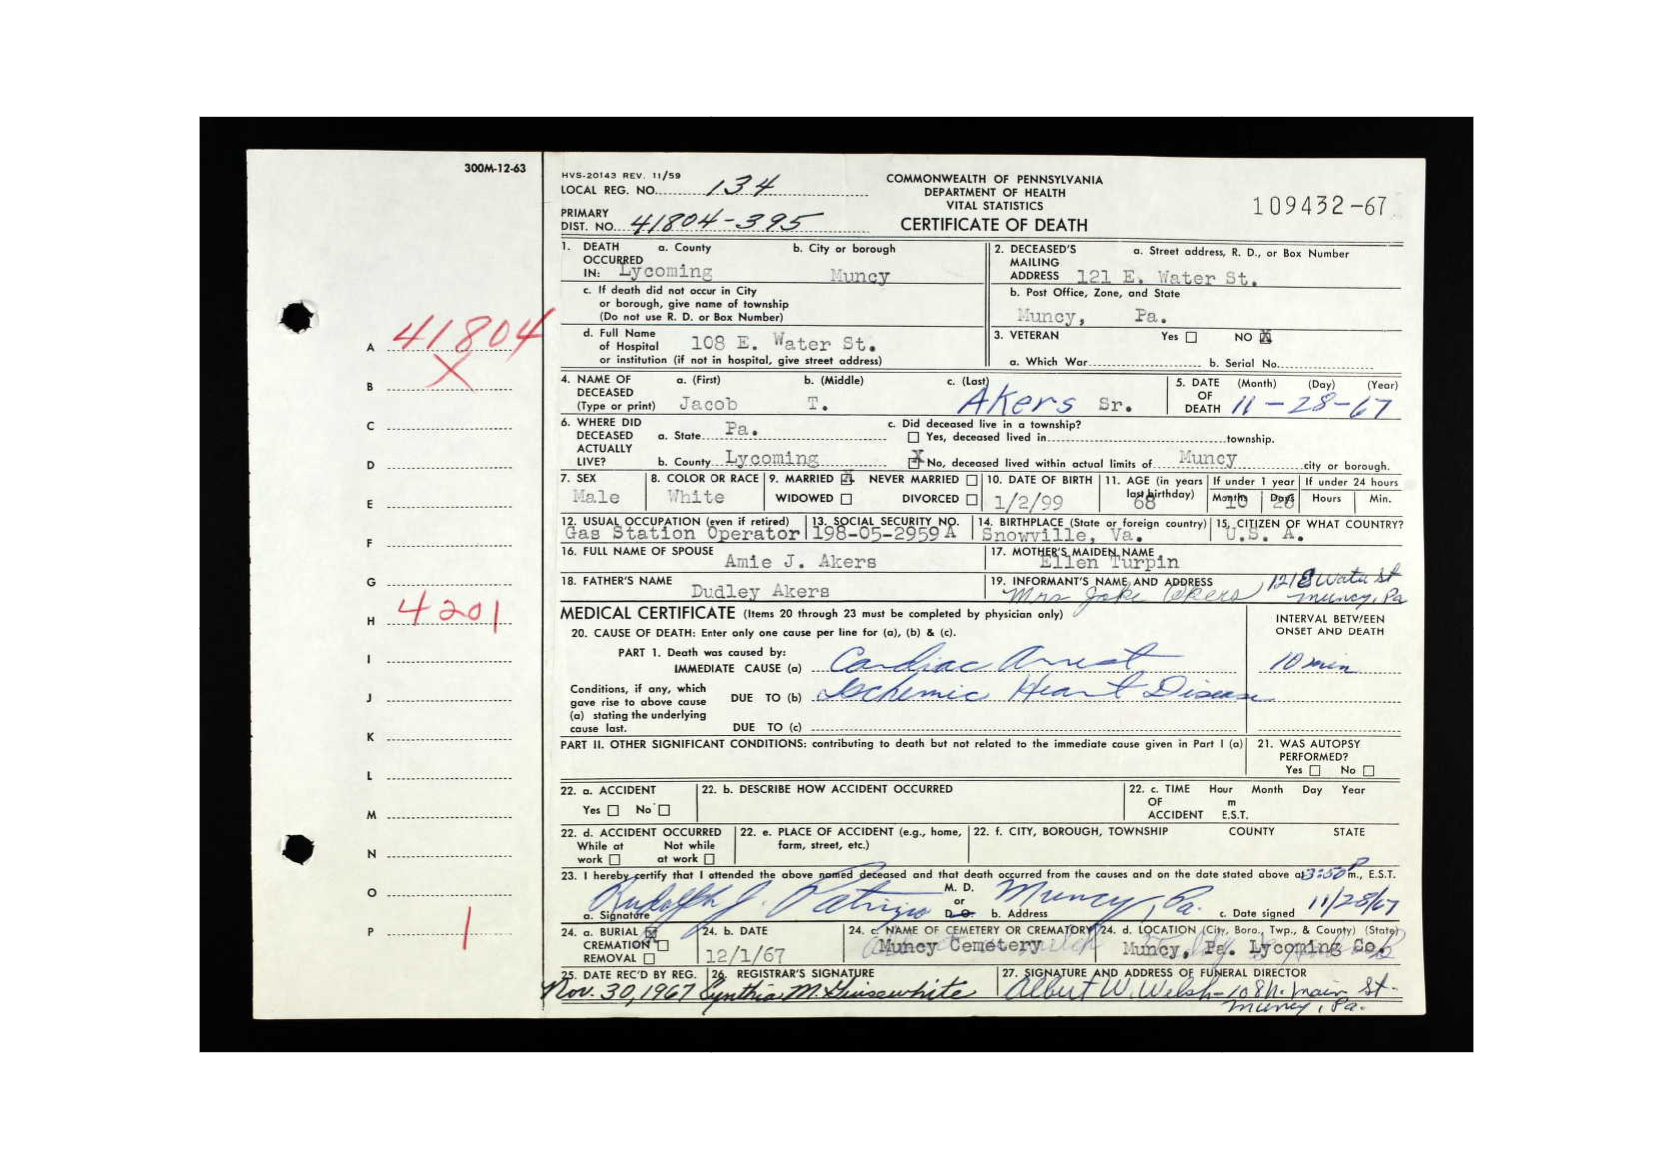 300M-12-63
HVS-20143 REV. 11/59
LOCAL REG. NO. 134
COMMONWEALTH OF PENNSYLVANIA
DEPARTMENT OF HEALTH
VITAL STATISTICS
CERTIFICATE OF DEATH
109432-67
PRIMARY
DIST. NO. 41804-395
1. DEATH OCCURRED IN: a. County b. City or borough
Lycoming Muncy
2. DECEASED'S MAILING ADDRESS a. Street address, R. D., or Box Number
121 E. Water St.
c. If death did not occur in City
or borough, give name of township
(Do not use R. D. or Box Number)
b. Post Office, Zone, and State
Muncy, Pa.
d. Full Name
of Hospital 108 E. Water St.
or institution (if not in hospital, give street address)
3. VETERAN Yes NO X
a. Which War b. Serial No.
4. NAME OF DECEASED (Type or print) a. (First) b. (Middle) c. (Last)
Jacob T. Akers Sr.
5. DATE OF DEATH (Month) (Day) (Year)
11-28-67
6. WHERE DID DECEASED ACTUALLY LIVE? a. State Pa.
b. County Lycoming
c. Did deceased live in a township?
Yes, deceased lived in township.
X No, deceased lived within actual limits of Muncy city or borough.
7. SEX Male
8. COLOR OR RACE White
9. MARRIED X NEVER MARRIED
WIDOWED DIVORCED
10. DATE OF BIRTH 1/2/99
11. AGE (in years last birthday) 68
If under 1 year If under 24 hours
Months 10 Days 26 Hours Min.
12. USUAL OCCUPATION (even if retired) Gas Station Operator
13. SOCIAL SECURITY NO. 198-05-2959 A
14. BIRTHPLACE (State or foreign country) Snowville, Va.
15. CITIZEN OF WHAT COUNTRY? U.S. A.
16. FULL NAME OF SPOUSE Amie J. Akers
17. MOTHER'S MAIDEN NAME Ellen Turpin
18. FATHER'S NAME Dudley Akers
19. INFORMANT'S NAME AND ADDRESS
Mrs Jake Akers 121 E Water St
Muncy, Pa
MEDICAL CERTIFICATE (Items 20 through 23 must be completed by physician only)
INTERVAL BETWEEN
ONSET AND DEATH
20. CAUSE OF DEATH: Enter only one cause per line for (a), (b) & (c).
PART 1. Death was caused by:
IMMEDIATE CAUSE (a) Cardiac Arrest 10 min
Conditions, if any, which
gave rise to above cause
(a) stating the underlying
cause last.
DUE TO (b) Ischemic Heart Disease
DUE TO (c)
PART II. OTHER SIGNIFICANT CONDITIONS: contributing to death but not related to the immediate cause given in Part I (a)
21. WAS AUTOPSY PERFORMED?
Yes No
22. a. ACCIDENT
Yes No
22. b. DESCRIBE HOW ACCIDENT OCCURRED
22. c. TIME OF ACCIDENT Hour Month Day Year
m
E.S.T.
22. d. ACCIDENT OCCURRED
While at work Not while at work
22. e. PLACE OF ACCIDENT (e.g., home, farm, street, etc.)
22. f. CITY, BOROUGH, TOWNSHIP COUNTY STATE
23. I hereby certify that I attended the above named deceased and that death occurred from the causes and on the date stated above at 3:50 P m., E.S.T.
a. Signature Rudolph J. Patrizio M. D. or D.O. b. Address Muncy, Pa. c. Date signed 11/28/67
24. a. BURIAL X
CREMATION
REMOVAL
24. b. DATE 12/1/67
24. c. NAME OF CEMETERY OR CREMATORY Muncy Cemetery
24. d. LOCATION (City, Boro., Twp., & County) (State)
Muncy, Pa. Lycoming Co.
25. DATE REC'D BY REG. Nov. 30, 1967
26. REGISTRAR'S SIGNATURE Cynthia M.
27. SIGNATURE AND ADDRESS OF FUNERAL DIRECTOR
Albert W. Welsh-108 N. Main St.
Muncy, Pa.
A 41804
B X
C
D
E
F
G
H 4201
I
J
K
L
M
N
O
P 1